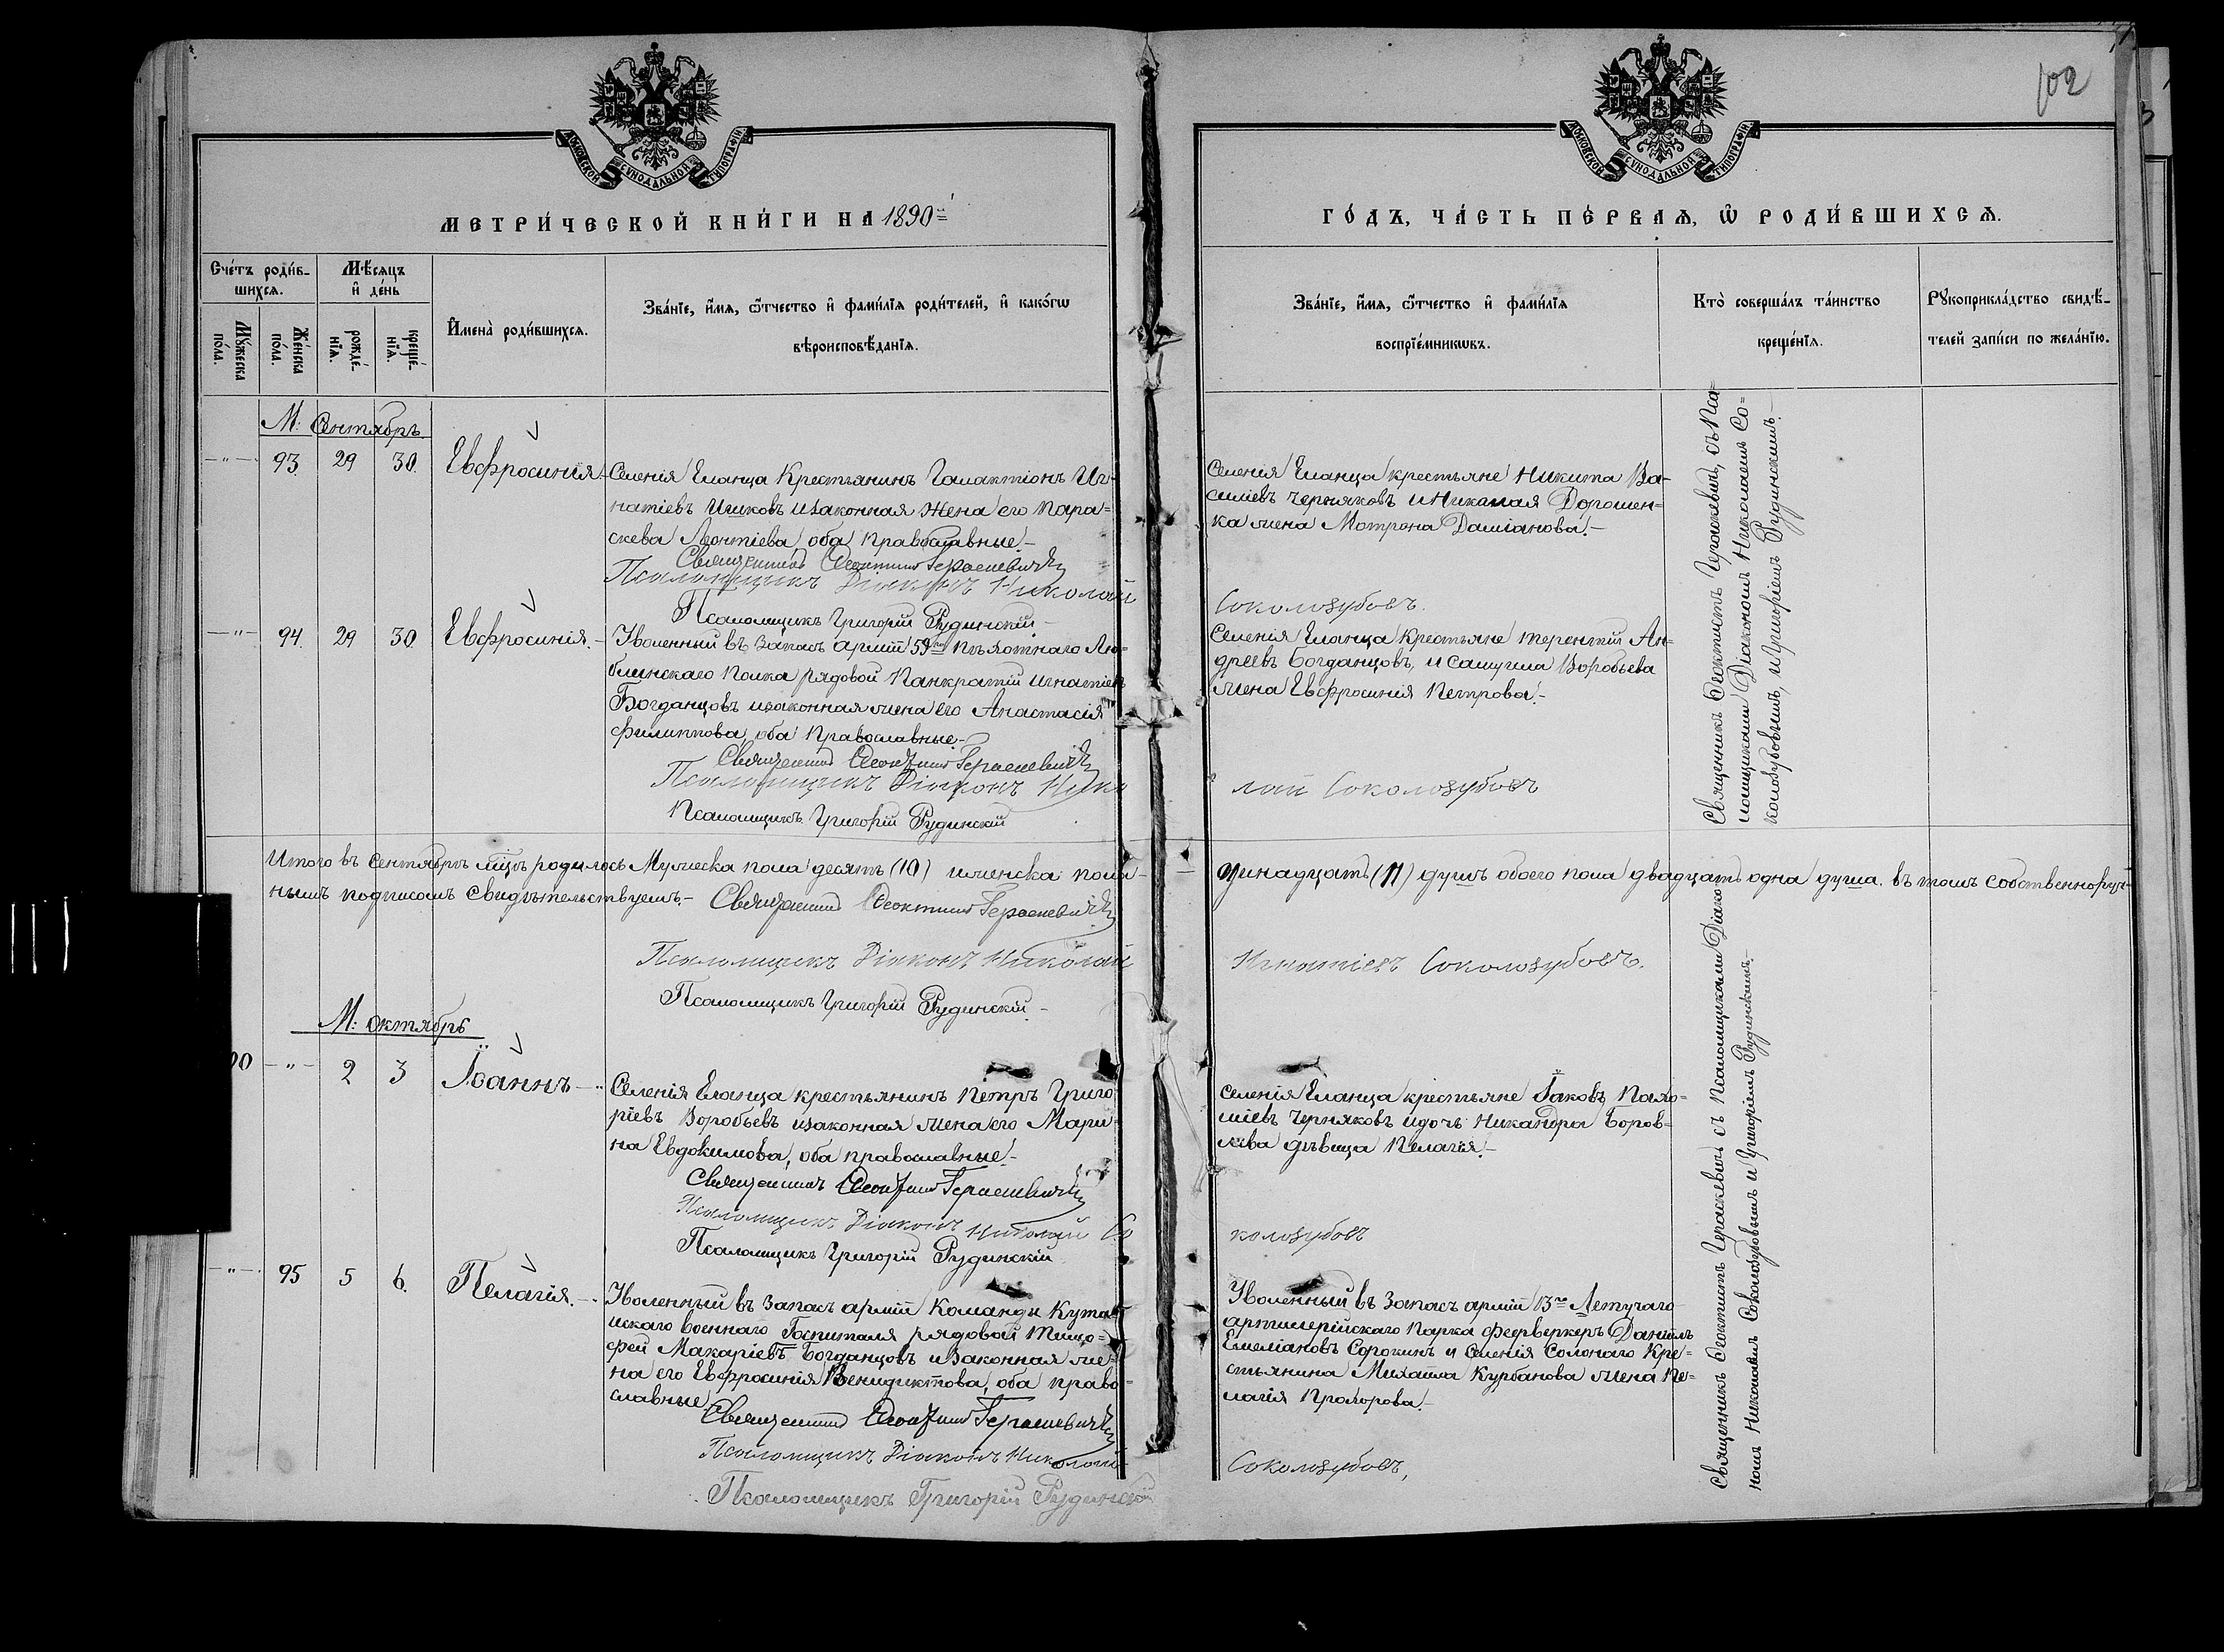 102
МОСКОВСКОЙ СУНОДАЛЬНОЙ ТИПОГРАФІИ
МОСКОВСКОЙ СУНОДАЛЬНОЙ ТИПОГРАФІИ
МЕТРИ́ЧЕСКОЙ КНИ́ГИ НА 1890й
ГО́ДЪ, ЧА́СТЬ ПЕ́РВАѦ, Ѡ҆ РОДИ́ВШИХСѦ.
Сче́тъ роди́в-
шихсѧ.
Мѣ́сѧцъ
и҆ де́нь
Мꙋ́жеска
по́ла.
Же́нска
по́ла.
рожде́-
нїѧ.
креще́-
нїѧ.
И҆мена̀ роди́вшихсѧ.
Зва́нїе, и҆́мѧ, ѻ҆́тчество и҆ фами́лїѧ роди́телей, и҆ како́гѡ
вѣроисповѣ́данїѧ.
Зва́нїе, и҆́мѧ, ѻ҆́тчество и҆ фами́лїѧ
воспрїе́мникѡвъ.
Кто̀ соверша́лъ та́инство
креще́нїѧ.
Рꙋкоприкла́дство свидѣ́-
телей за́писи по жела́нїю.
М: Сентябрь.
—"— 93. 29 30. Евфросинія.
Селенія Еланца Крестьянинъ Галактіонъ Иг-
натіевъ Ишковъ изаконная жена его Пара=
скева Леонтіева, оба православные.—
Священникъ Феоктистъ Гераскевичъ
Псаломщикъ Діаконъ Николай
Соколозубовъ.
Псаломщикъ Григорій Рудинскій
Селенія Еланца крестьяне Никита Ва-
силіевъ Черняковъ и Николая Дорошен-
ка жена Матрона Даміанова.—
Священникъ Феоктистъ Гераскевичъ, съ Пса=
ломщиками Діакономъ Николаемъ Со=
колозубовымъ, и Григоріемъ Рудинскимъ.—
—"— 94. 29 30 Евфросинія.—
Уволенный въ запасъ арміи 59го пѣхотнаго Лю-
блинскаго полка рядовой Панкратій Игнатіевъ
Богданцовъ изаконная жена его Анастасія
Филиппова, оба Православные.—
Священникъ Феоктистъ Гераскевичъ
Псаломщикъ Діаконъ Нико
лай Соколозубовъ
Псаломщикъ Григорій Рудинскій
Селенія Еланца Крестьяне Терентій Ан-
дреевъ Богданцовъ, и Самуила Воробьева
жена Евфросинія Петрова.—
Итого въ Сентябрѣ мцѣ родилось Мужеска пола десять (10) женска пола
одинадцать (11) душъ обоего пола двадцать одна душа. въ томъ собственноруч-
нымъ подписомъ свидѣтельствуемъ.— Священникъ Феоктистъ Гераскевичъ
Псаломщикъ Діаконъ Николай
Игнатіевъ Соколозубовъ.
Псаломщикъ Григорій Рудинскій.—
М: Октябрь
00 —"— 2 3 Іоаннъ—
Селенія Еланца крестьянинъ Петръ Григо
ріевъ Воробьевъ изаконная жена его Мари-
на Евдокимова, оба православные.—
Священникъ Феоктистъ Гераскевичъ
Псаломщикъ Діаконъ Николай Со
колозубовъ
Псаломщикъ Григорій Рудинскій
Селенія Еланца крестьяне Іаковъ
Черняковъ идочь Никандра Боров-
дѣвица Пелагія.—
Священникъ Феоктистъ Гераскевичъ съ Псаломщиками Діако-
номъ Николаемъ Соколозубовымъ и Григоріемъ Рудинскимъ.—
—"— 95 5 6. Пелагія.—
Уволенный въ запасъ арміи Команды Кута-
искаго военнаго Госпиталя рядовой Тимо=
фей Макаріевъ Богданцовъ изаконная же-
на его Евфросинія Венидиктова, оба право-
славные.
Священникъ Феоктистъ Гераскевичъ
Псаломщикъ Діаконъ Николай
Соколозубовъ,
Псаломщикъ Григорій Рудинскій
Уволенный въ запасъ арміи 13го Летучаго
артилерійскаго парка феерверкеръ Даніилъ
Емеліановъ Сорокинъ и Селенія Солонаго Кре=
стьянина Михаила Курбанова жена Пе-
лагія Прохорова.—